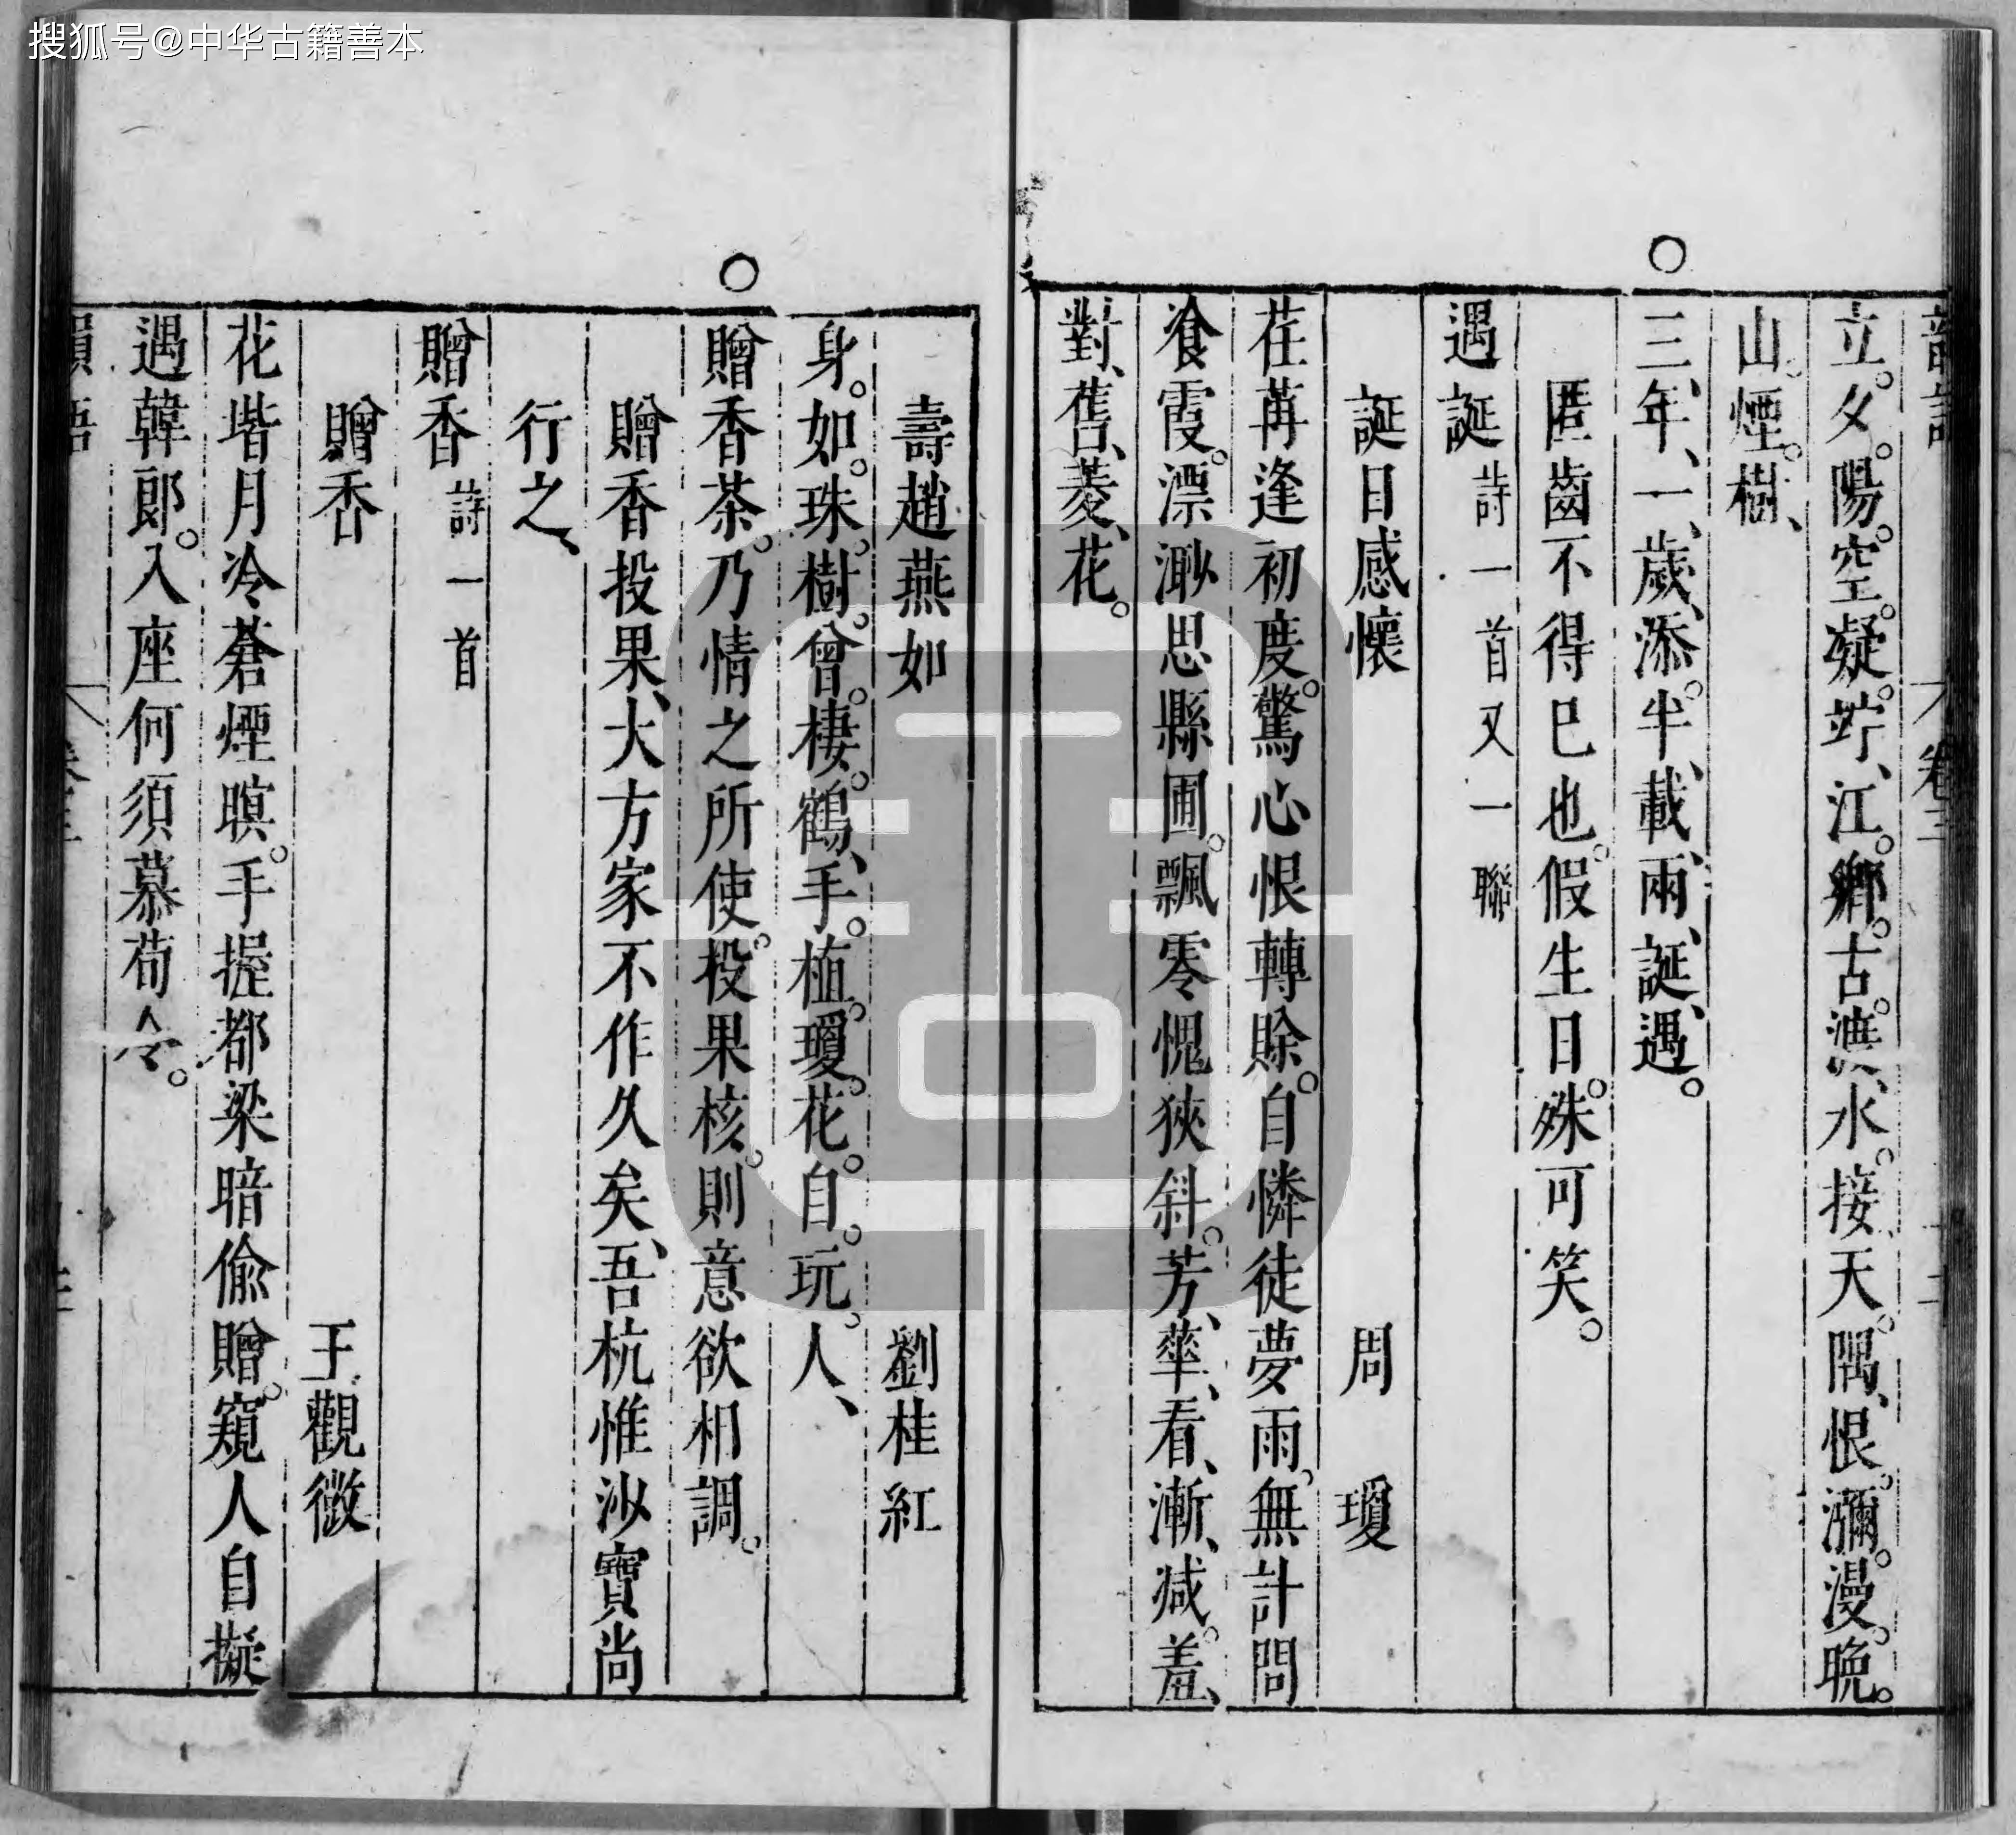 搜狐号@中华古籍善本
立。夂。陽。空。凝。竚、江。鄉。古。漁、水。接、天。隅、恨。瀰。漫。晚。
山。煙。樹、
三、年、一、歲、添。半、載、兩、誕、遇。
匿齒不得巳也。假生日。殊可笑。
遇誕詩一首又一聯
誕日感懷 周瓊
荏苒逢初度。驚心恨轉賖。自憐徒夢雨。無計問
飡霞。漂渺思縣圃。飄零愧狹斜。芳、華、看、漸、减。羞、
對、舊、菱、花。
壽趙燕如 劉桂紅
身。如。珠。樹。曾。棲。鶴、手。植。瓊。花。自。玩。人、
贈香茶。乃情之所使。投果核。則意欲相調。
贈香投果、大方家不作久矣、吾杭惟沙寶尚
行之、
贈香詩一首
贈香 王觀微
花堦月冷蒼煙暝。手握都梁暗偸贈。窺人自擬
遇韓郎。入座何須慕荀令。
卷三